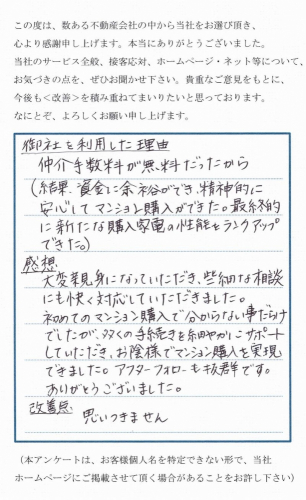 この度は、数ある不動産会社の中から当社をお選び頂き、
心より感謝申し上げます。本当にありがとうございました。
当社のサービス全般、接客応対、ホームページ・ネット等について、
お気づきの点を、ぜひお聞かせ下さい。貴重なご意見をもとに、
今後も<改善>を積み重ねてまいりたいと思っております。
なにとぞ、よろしくお願い申し上げます。
御社を利用した理由
仲介手数料が無料だったから
(結果、資金に余裕ができ、精神的に
安心してマンション購入ができた。最終的
に新たな購入家電の性能をランクアップ
できた。)
感想
大変親身になっていただき、些細な相談
にも快く対応していただきました。
初めてのマンション購入で分からない事だらけ
でしたが、双々の手続きを細やかにサポート
していただき、お陰様でマンション購入を実現
できました。アフターフォローも抜群です。
ありがとうございました。
改善点
思いつきません
(本アンケートは、お客様個人名を特定できない形で、当社
ホームページにご掲載させて頂く場合があることをお許し下さい)